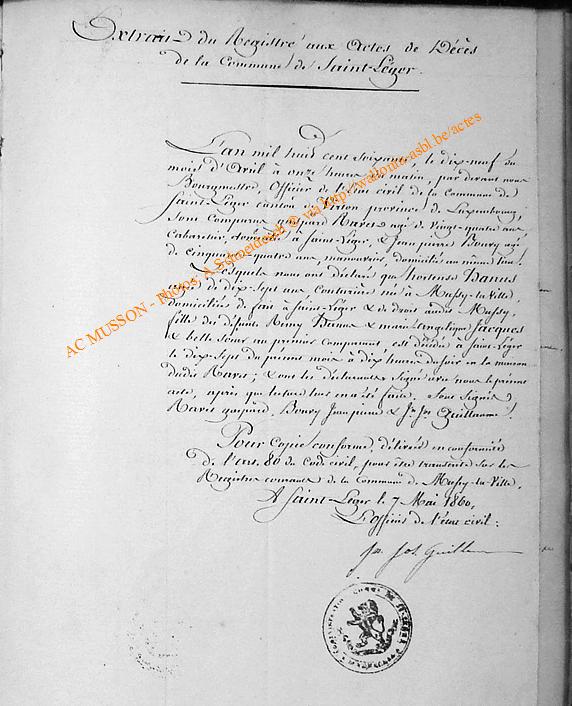 Extrait du Registre aux Actes de Décès
de la Commune de Saint-Léger.
L'an mil huit cent soixante le dix-neuf du
mois d'Avril à onze heures du matin, par devant nous
Bourgmestre, Officier de l'état civil de la Commune de
Saint-Léger canton de Virton province de Luxembourg,
sont comparus gaspard Ravet agé de vingt-quatre ans
Cabaretier, domicilié à Saint-Léger, & Jean pierre Bouvy agé
de cinquante quatre ans, manouvrier, domicilié au même lieu;
Lesquels nous ont déclaré que hortense Hanus
agée de dix-sept ans Couturière née à Mussy-la-Ville,
domiciliée de fait à Saint-Léger & de droit audit Mussy,
fille des défunts Remy Hanus & marie Angélique Jacques
& belle soeur au premier comparant, est décédée à Saint-Léger
le dix-sept du présent mois à dix heures du soir en la maison
dudit Ravet; & ont les déclarants signé avec nous le présent
acte, après que lecture leur en a été faite. Sont signés
Ravet gaspard, Bouvy Jean pierre & Jn Jos Guillaume.
Pour Copie conforme, délivrée en conformité
de l'art. 80 du Code civil, pour être transcrite sur les
Registres courants de la Commune de Mussy-la-Ville.
A Saint-Léger le 7 Mai 1860,
L'officier de l'état civil:
Jn Jos. Guillaume
AC MUSSON - Photos: A.Schneidesch © via http://wallonia-asbl.be/actes